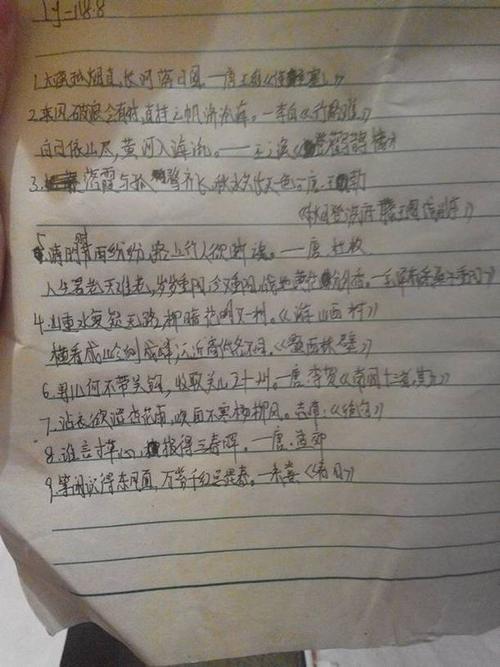 1.大漠孤烟直,长河落日圆。—唐.王维《使塞》
2.乘风破浪会有时,直挂云帆济沧海。—李白《行路难》
白日依山尽,黄河入海流。——王之涣《登鹳雀楼》
3.落霞与孤鹜齐飞,秋水共长天一色。—唐.王勃
《秋日登洪府滕王阁饯别序》
5清明时节雨纷纷,路上行人欲断魂。——唐.杜牧
人生易老天难老,岁岁重阳,今又重阳,战地黄花分外香。—毛泽东
4.山重水复疑无路,柳暗花明又一村。《游山西村》
横看成岭侧成峰,远近高低各不同。《题西林壁》
6.男儿何不带吴钩,收取关山五十州。—唐.李贺《南园十三首,其五》
7.沾衣欲湿杏花雨,吹面不寒杨柳风。志南.《绝句》
8.谁言寸草心,报得三春晖。—唐.孟郊
9.等闲识得东风面,万紫千红总是春。—朱熹《春日》